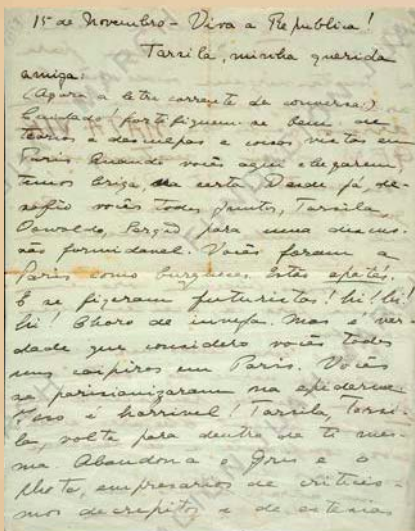 15 de Novembro - Viva a Republica!
Tarsila, minha querida
amiga
(Agora a letra corrente da conversa.)
Cuidado! fortifiquem-se bem de
teorias e desculpas e coisas vistas em
Paris. Quando vocês aqui chegarem
temos briga, na certa. Desde já, de-
safio vocês todos juntos, Tarsila,
Oswaldo, Sergio para uma discus-
são formidavel. Vocês foram a
Paris como burgueses. Estão épatés.
E se fizeram futuristas! hi! hi!
hi! Choro de inveja. Mas é ver-
dade que considero vocês todos
uns caipiras em Paris. Vocês
se parisianizaram na epiderme.
Isso é horrivel! Tarsila, Tarsi-
la, volta para dentro de ti mes-
ma. Abandona o Gris e o
Lhote, empresarios de criticis-
mos decrepitos e de estesias